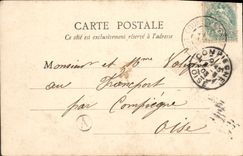 CARTE POSTALE
Ce côté est exclusivement réservé à l'adresse
Monsieur et Mme
au Francport
par Compiègne
Oise
COMPIEGNE
OISE